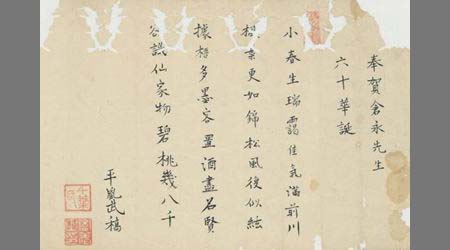 奉賀倉永先生
六十華誕
小春生瑞靄佳氣滿前川
更如錦松風復似絃
據梧多墨客置酒盡名賢
識仙家物碧桃幾八千
平武稿